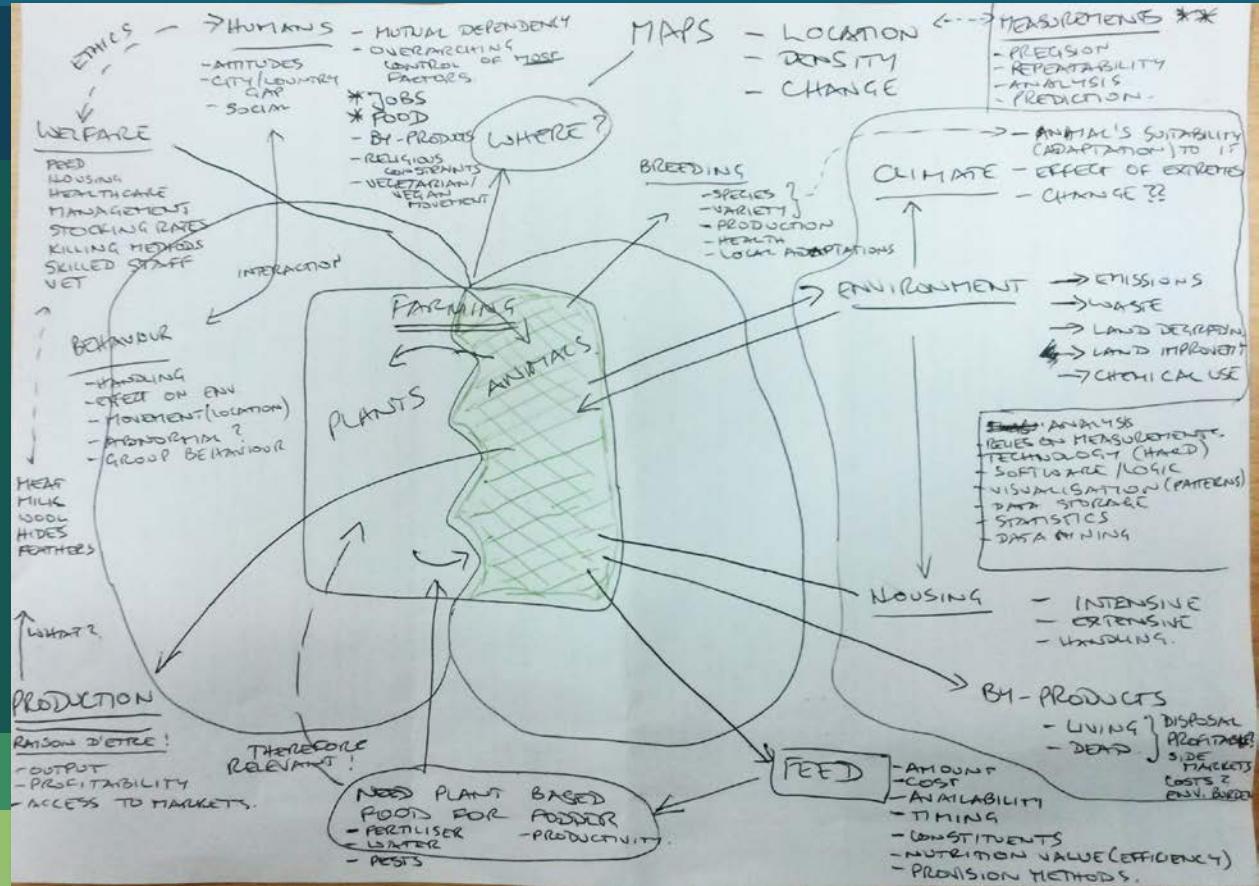 ETHICS
HUMANS
- ATTITUDES
- CITY/COUNTRY
GAP
- SOCIAL
- MUTUAL DEPENDENCY
- OVERARCHING
CONTROL OF MOST
FACTORS
* JOBS
* FOOD
- BY-PRODUCTS
- RELIGIOUS
CONSTRAINTS
- VEGETARIAN/
VEGAN
MOVEMENT
MAPS
- LOCATION
- DENSITY
- CHANGE
MEASUREMENTS **
- PRECISION
- REPEATABILITY
- ANALYSIS
- PREDICTION.
WELFARE
FEED
HOUSING
HEALTHCARE
MANAGEMENT
STOCKING RATES
KILLING METHODS
SKILLED STAFF
VET
WHERE?
BREEDING
- SPECIES
- VARIETY
- PRODUCTION
- HEALTH
- LOCAL ADAPTATIONS
CLIMATE
- ANIMAL'S SUITABILITY
(ADAPTATION) TO IT
- EFFECT OF EXTREMES
- CHANGE ??
INTERACTION
FARMING
ANIMALS
PLANTS
ENVIRONMENT
EMISSIONS
WASTE
LAND DEGRADN.
LAND IMPROVEMT
CHEMICAL USE
BEHAVIOUR
- HANDLING
- EFFECT ON ENV
- MOVEMENT (LOCATION)
- ABNORMAL?
- GROUP BEHAVIOUR
ANALYSIS
- RELIES ON MEASUREMENTS.
TECHNOLOGY (HARD)
- SOFTWARE/LOGIC
- VISUALISATION (PATTERNS)
- DATA STORAGE
- STATISTICS
- DATA MINING
MEAT
MILK
WOOL
HIDES
FEATHERS
HOUSING
- INTENSIVE
- EXTENSIVE
- HANDLING.
WHAT?
PRODUCTION
RAISON D'ETRE!
- OUTPUT
- PROFITABILITY
- ACCESS TO MARKETS.
BY-PRODUCTS
- LIVING
- DEAD
DISPOSAL
PROFITABLE?
SIDE
MARKETS
COSTS?
ENV. BURDEN
THEREFORE
RELEVANT!
NEED PLANT BASED
FOOD FOR FODDER
- FERTILISER
- WATER
- PESTS
- PRODUCTIVITY.
FEED
- AMOUNT
- COST
- AVAILABILITY
- TIMING
- CONSTITUENTS
- NUTRITION VALUE (EFFICIENCY)
- PROVISION METHODS.